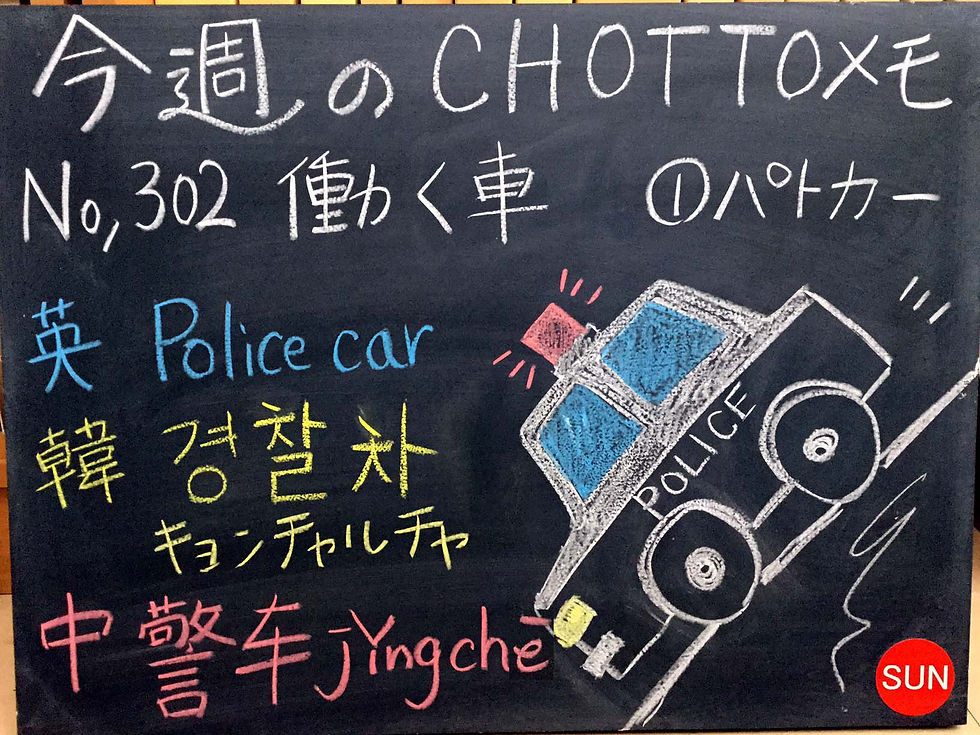 今週のCHOTTOメモ
No,302 働く車 ①パトカー
英 Police car
韓 경찰차
キョンチャルチャ
中 警车 jǐngchē
POLICE
SUN